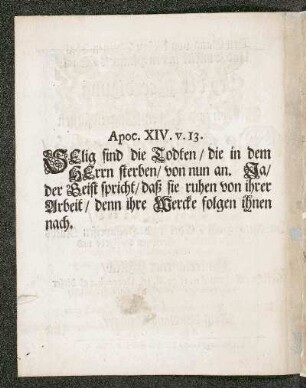 Apoc. XIV. v. 13.
SElig sind die Todten / die in dem
HErrn sterben / von nun an. Ja /
der Geist spricht / daß sie ruhen von ihrer
Arbeit / denn ihre Wercke folgen ihnen
nach.